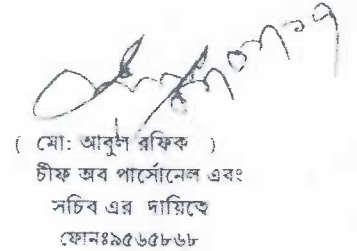 ( মো: আবুল রফিক )
চীফ অব পার্সোনেল এবং
সচিব এর দায়িত্বে
ফোনঃ৯৫৬৫৮৬৮